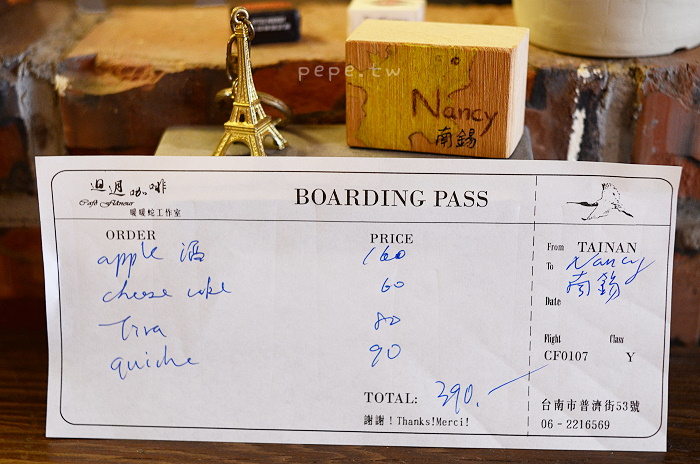 pepe.tw
Nancy
南錫
迴週咖啡
Café Flâneur
暖暖蛇工作室
BOARDING PASS
ORDER PRICE
apple 酒 160
cheese cake 60
Tira 80
quiche 90
TOTAL: 390.
謝謝！Thanks!Merci!
From TAINAN
To Nancy
南錫
Date
Flight Class
CF0107 Y
台南市普濟街53號
06-2216569